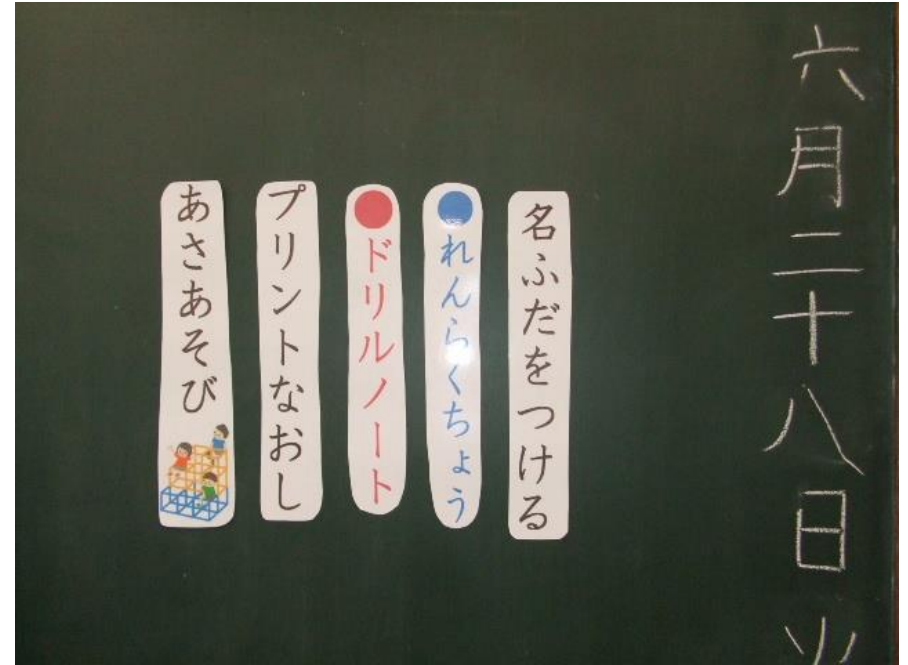 六月二十八日火
名ふだをつける
れんらくちょう
ドリルノート
プリントなおし
あさあそび